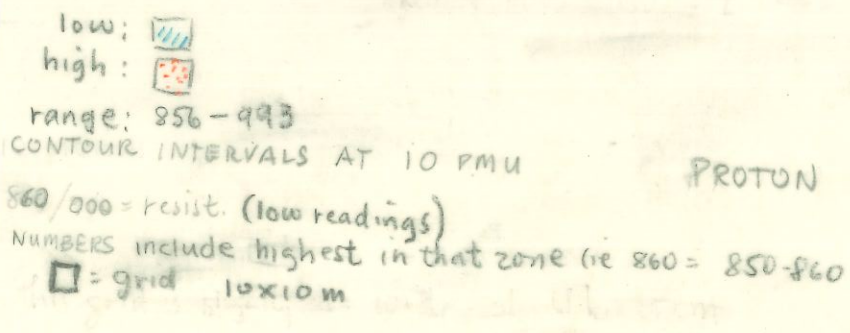 low:
high:
range: 856-993
CONTOUR INTERVALS AT 10 PMU
PROTON
860/000 = resist. (low readings)
NUMBERS include highest in that zone (ie 860 = 850-860
= grid 10x10m